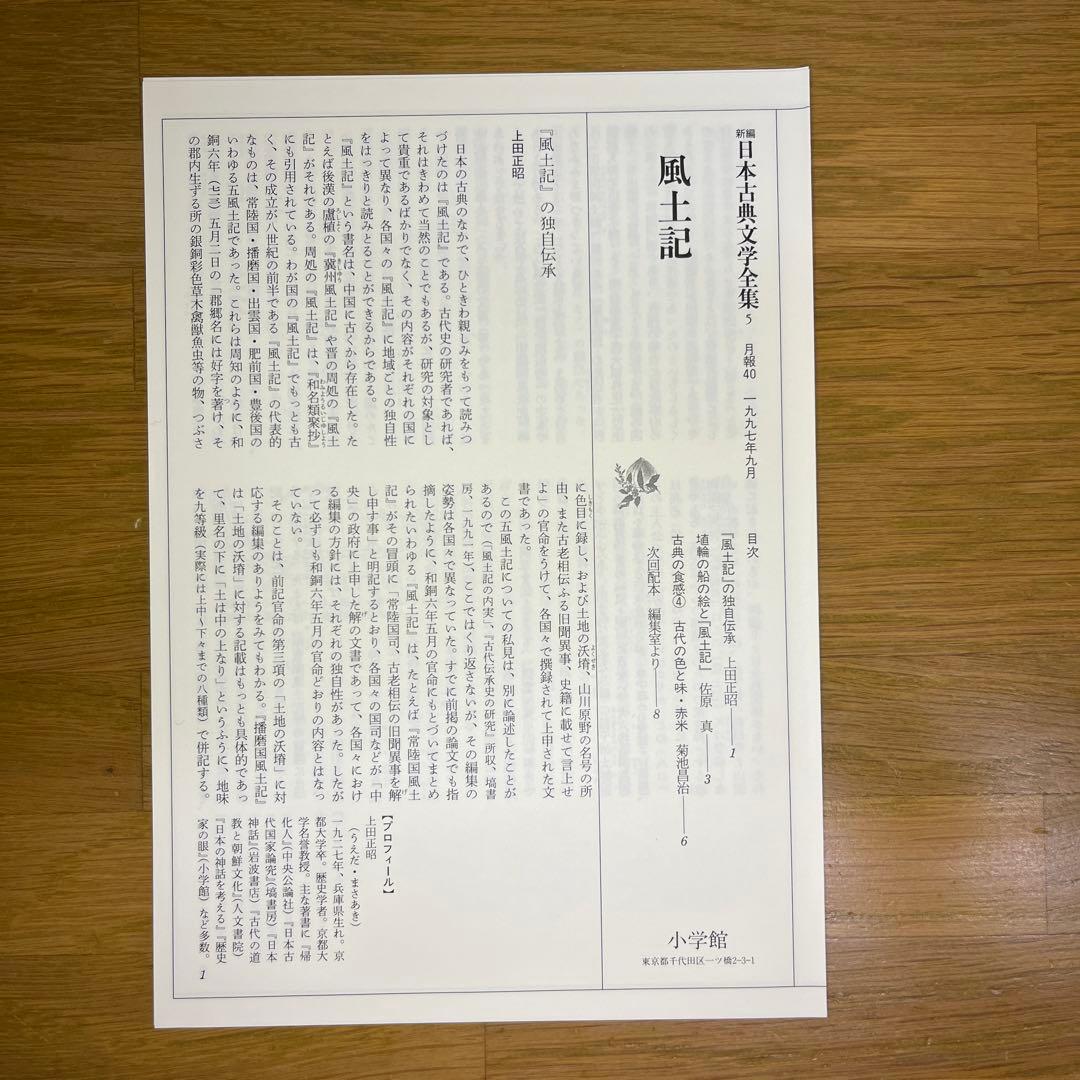 新編 日本古典文学全集 5 月報40 一九九七年九月
風土記
目次
『風土記』の独自伝承 上田正昭――1
埴輪の船の絵と『風土記』 佐原 真――3
古典の食感④ 古代の色と味・赤米 菊池昌治――6
次回配本 編集室より――8
小学館
東京都千代田区一ツ橋2-3-1
『風土記』の独自伝承
上田正昭
日本の古典のなかで、ひときわ親しみをもって読みつ
づけたのは『風土記』である。古代史の研究者であれば、
それはきわめて当然のことでもあるが、研究の対象とし
て貴重であるばかりでなく、その内容がそれぞれの国に
よって異なり、各国々の『風土記』に地域ごとの独自性
をはっきりと読みとることができるからである。
『風土記』という書名は、中国に古くから存在した。た
とえば後漢の盧植の『冀州風土記』や晋の周処の『風土
記』がそれである。周処の『風土記』は、『和名類聚抄』
にも引用されている。わが国の『風土記』でもっとも古
く、その成立が八世紀の前半である『風土記』の代表的
なものは、常陸国・播磨国・出雲国・肥前国・豊後国の
いわゆる五風土記であった。これらは周知のように、和
銅六年(七一三)五月二日の「郡郷名には好字を著け、そ
の郡内生ずる所の銀銅彩色草木禽獣魚虫等の物、つぶさ
に色目に録し、および土地の沃塉、山川原野の名号の所
由、また古老相伝ふる旧聞異事、史籍に載せて言上せ
よ」の官命をうけて、各国々で撰録されて上申された文
書であった。
この五風土記についての私見は、別に論述したことが
あるので(「風土記の内実」、『古代伝承史の研究』所収、塙書
房、一九九一年)、ここではくり返さないが、その編集の
姿勢は各国々で異なっていた。すでに前掲の論文でも指
摘したように、和銅六年五月の官命にもとづいてまとめ
られたいわゆる『風土記』は、たとえば『常陸国風土
記』がその冒頭に「常陸国司、古老相伝の旧聞異事を解
し申す事」と明記するとおり、各国々の国司などが「中
央」の政府に上申した解の文書であって、各国々におけ
る編集の方針には、それぞれの独自性があった。したが
って必ずしも和銅六年五月の官命どおりの内容とはなっ
ていない。
そのことは、前記官命の第三項の「土地の沃塉」に対
応する編集のありようをみてもわかる。『播磨国風土記』
は「土地の沃塉」に対する記載はもっとも具体的であっ
て、里名の下に「土は中の上なり」というふうに、地味
を九等級(実際には上中〜下々までの八種類)で併記する。
【プロフィール】
上田正昭
(うえだ・まさあき)
一九二七年、兵庫県生れ。京
都大学卒。歴史学者。京都大
学名誉教授。主な著書に『帰
化人』(中央公論社)『日本古
代国家論究』(塙書房)『日本
神話』(岩波書店)『古代の道
教と朝鮮文化』(人文書院)
『日本の神話を考える』『歴史
家の眼』(小学館)など多数。
1